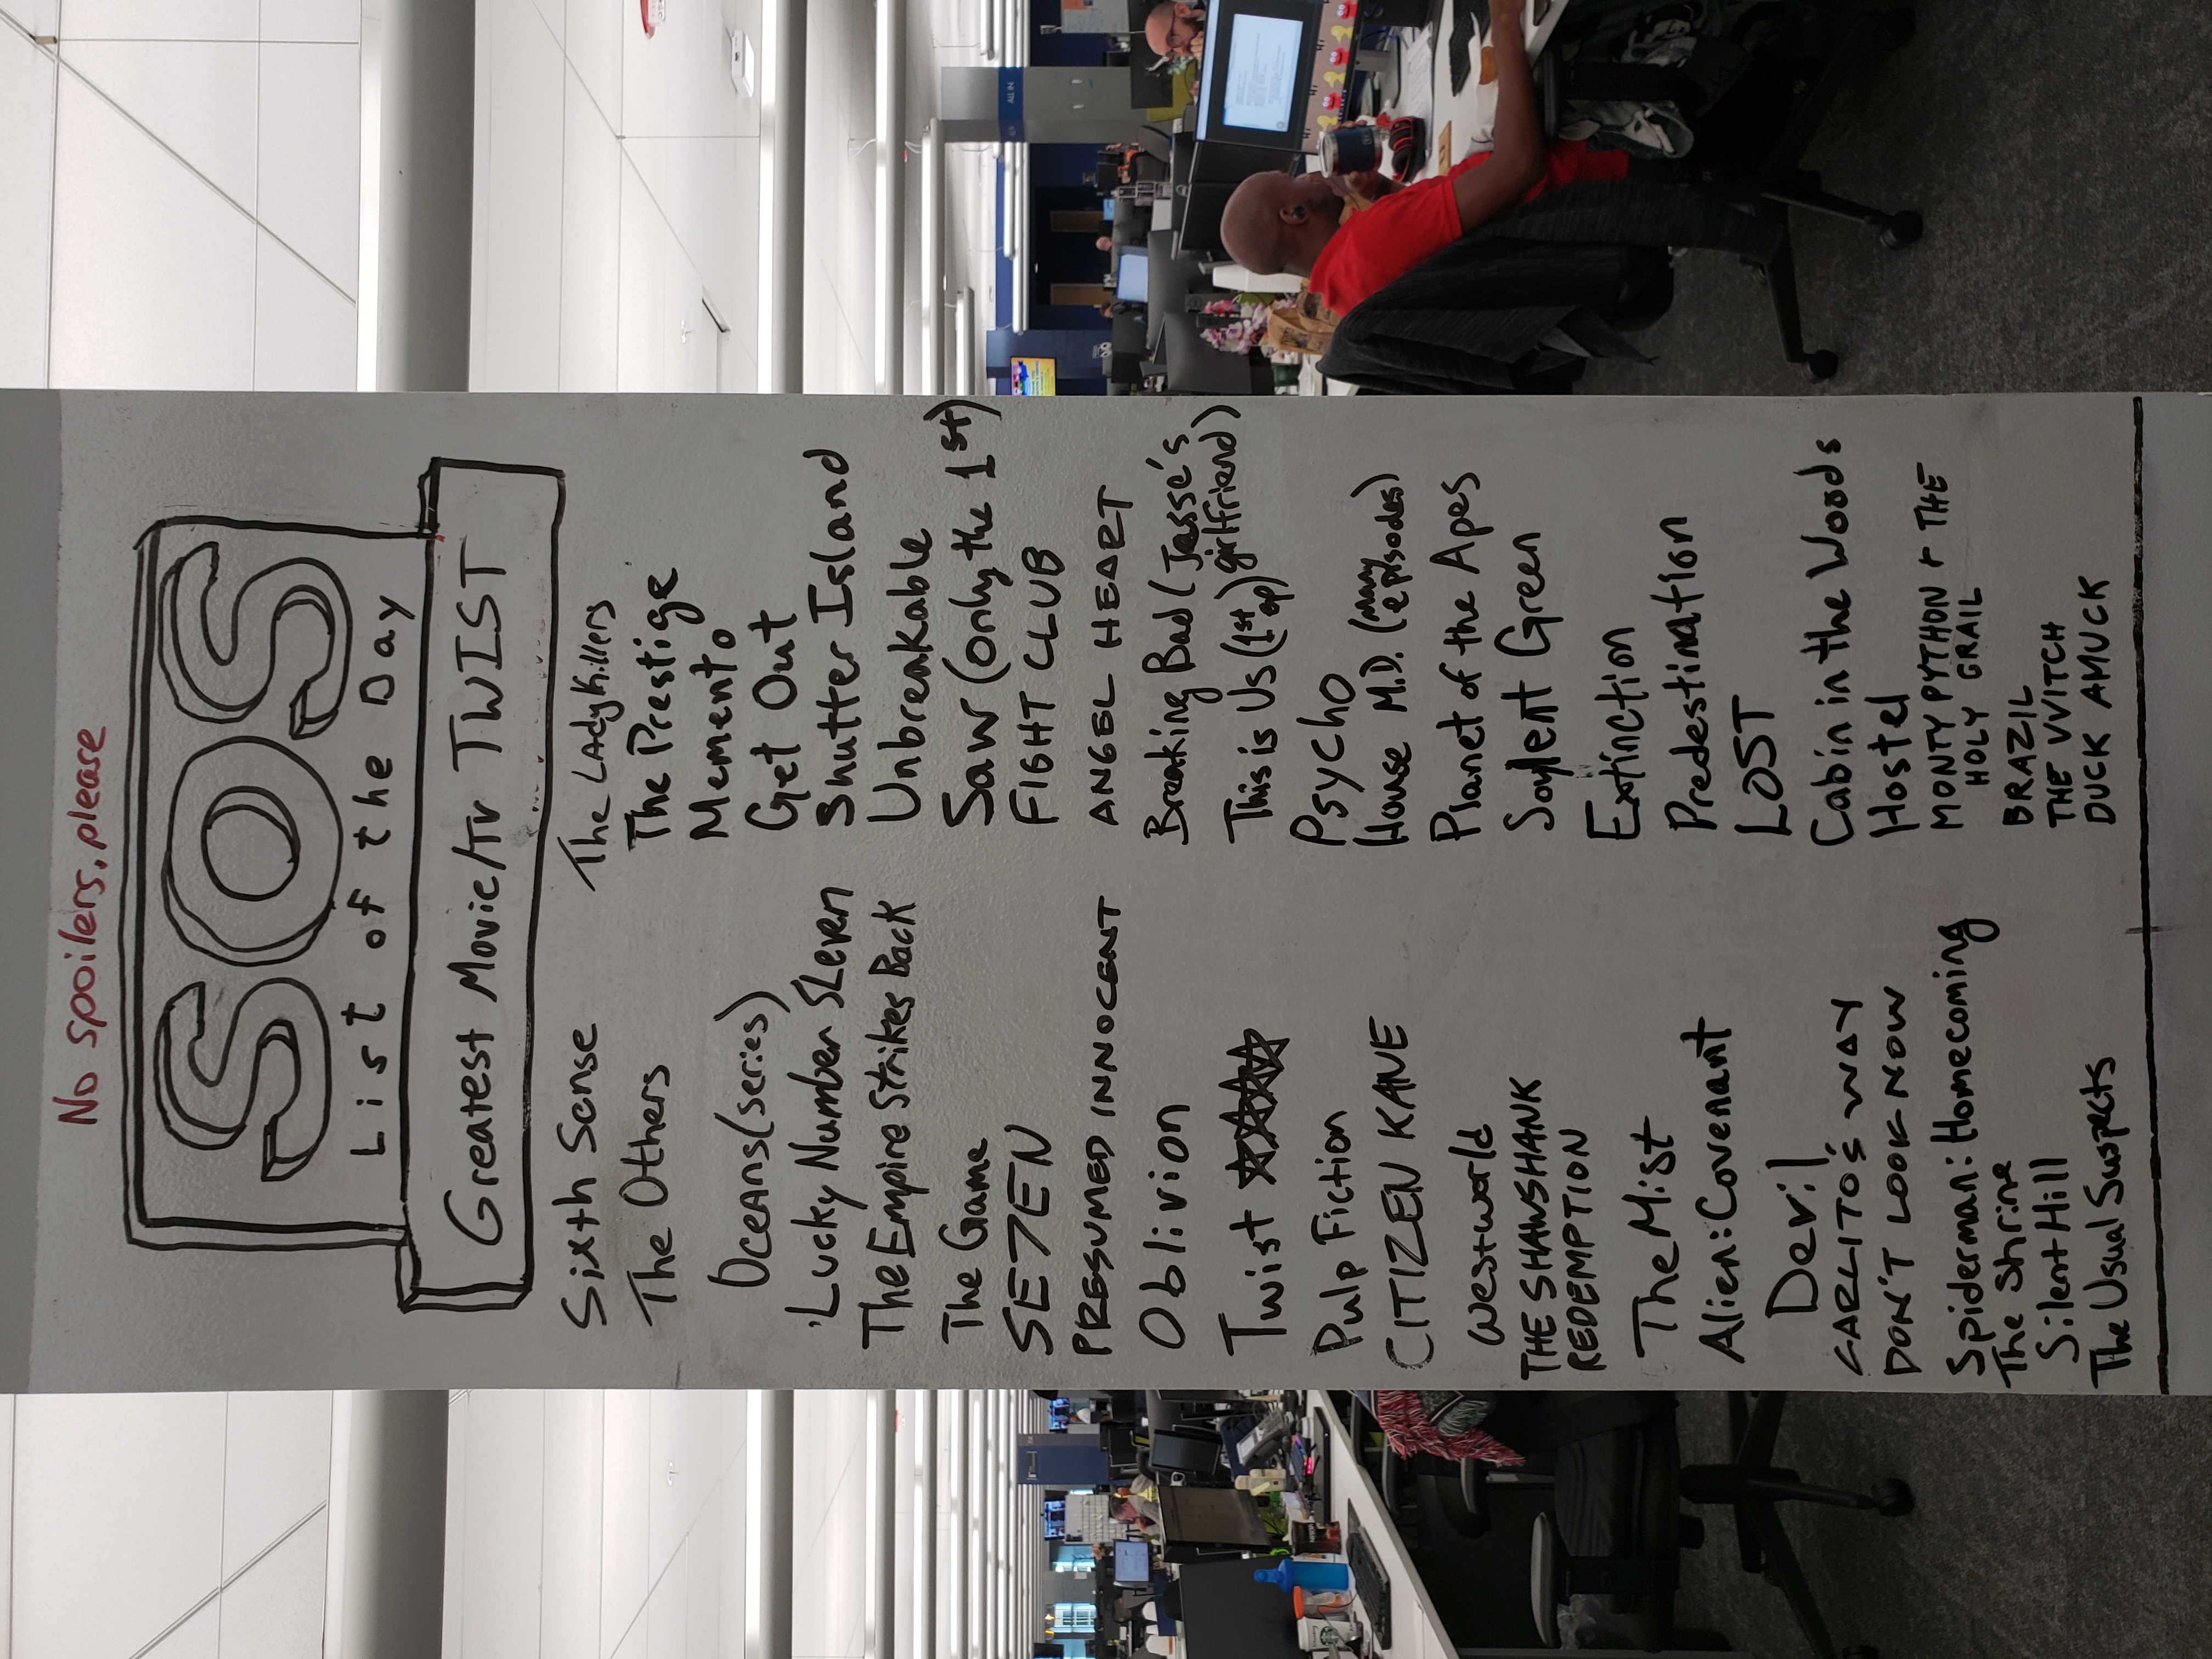 No spoilers, please
SOS
List of the Day
Greatest Movie/TV TWIST
Sixth Sense
The Others
Oceans (series)
Lucky Number SLeven
The Empire Strikes Back
The Game
SE7EN
PRESUMED INNOCENT
Oblivion
Twist
Pulp Fiction
CITIZEN KANE
Westworld
THE SHAWSHANK
REDEMPTION
The Mist
Alien: Covenant
Devil
CARLITO'S WAY
DON'T LOOK NOW
Spiderman: Homecoming
The Shrine
Silent Hill
The Usual Suspects
The LAdyKillers
The Prestige
Memento
Get Out
Shutter Island
Unbreakable
Saw (only the 1st)
FIGHT CLUB
ANGEL HEART
Breaking Bad (Jesse's
girlfriend)
This is Us (1st ep)
Psycho
House M.D. (many episodes)
Planet of the Apes
Soylent Green
Extinction
Predestination
LOST
Cabin in the Woods
Hostel
MONTY PYTHON + THE
HOLY GRAIL
BRAZIL
THE VVITCH
DUCK AMUCK
ALL IN